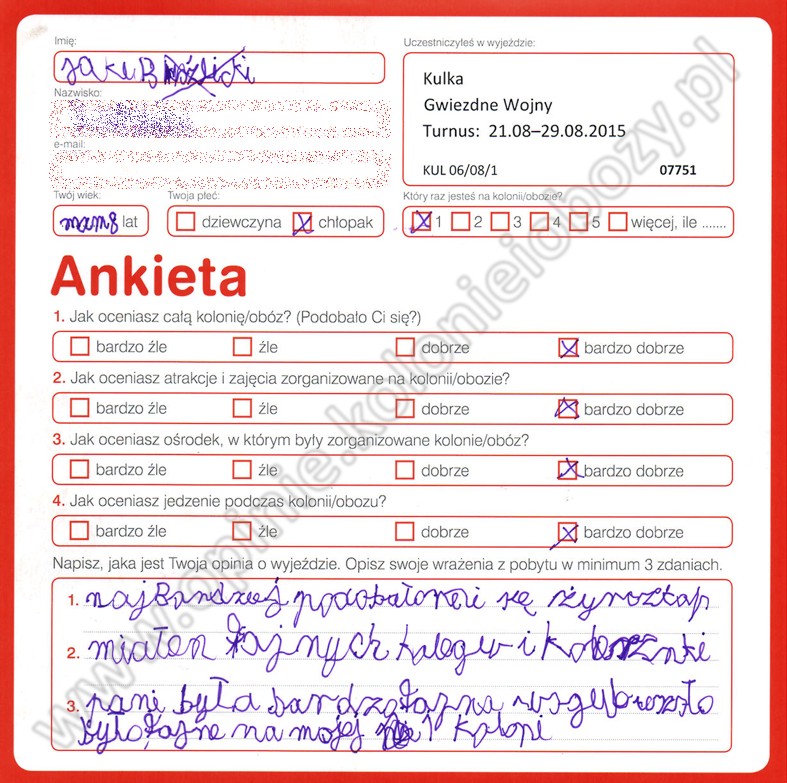 Imię:
JakuB
Uczestniczyłeś w wyjeździe:
Kulka
Gwiezdne Wojny
Turnus: 21.08–29.08.2015
KUL 06/08/1 07751
Nazwisko:
e-mail:
Twój wiek:
mam 8 lat
Twoja płeć:
dziewczyna chłopak
Który raz jesteś na kolonii/obozie?
1 2 3 4 5 więcej, ile .......
Ankieta
1. Jak oceniasz całą kolonię/obóz? (Podobało Ci się?)
bardzo źle źle dobrze bardzo dobrze
2. Jak oceniasz atrakcje i zajęcia zorganizowane na kolonii/obozie?
bardzo źle źle dobrze bardzo dobrze
3. Jak oceniasz ośrodek, w którym były zorganizowane kolonie/obóz?
bardzo źle źle dobrze bardzo dobrze
4. Jak oceniasz jedzenie podczas kolonii/obozu?
bardzo źle źle dobrze bardzo dobrze
Napisz, jaka jest Twoja opinia o wyjeździe. Opisz swoje wrażenia z pobytu w minimum 3 zdaniach.
1. najBardzej podobało mi się
2. miałem fajnych kolegów i
3. pani była bardzo fajna
było fajne na mojej 1 koloni
www.opinie.kolonieiobozy.pl